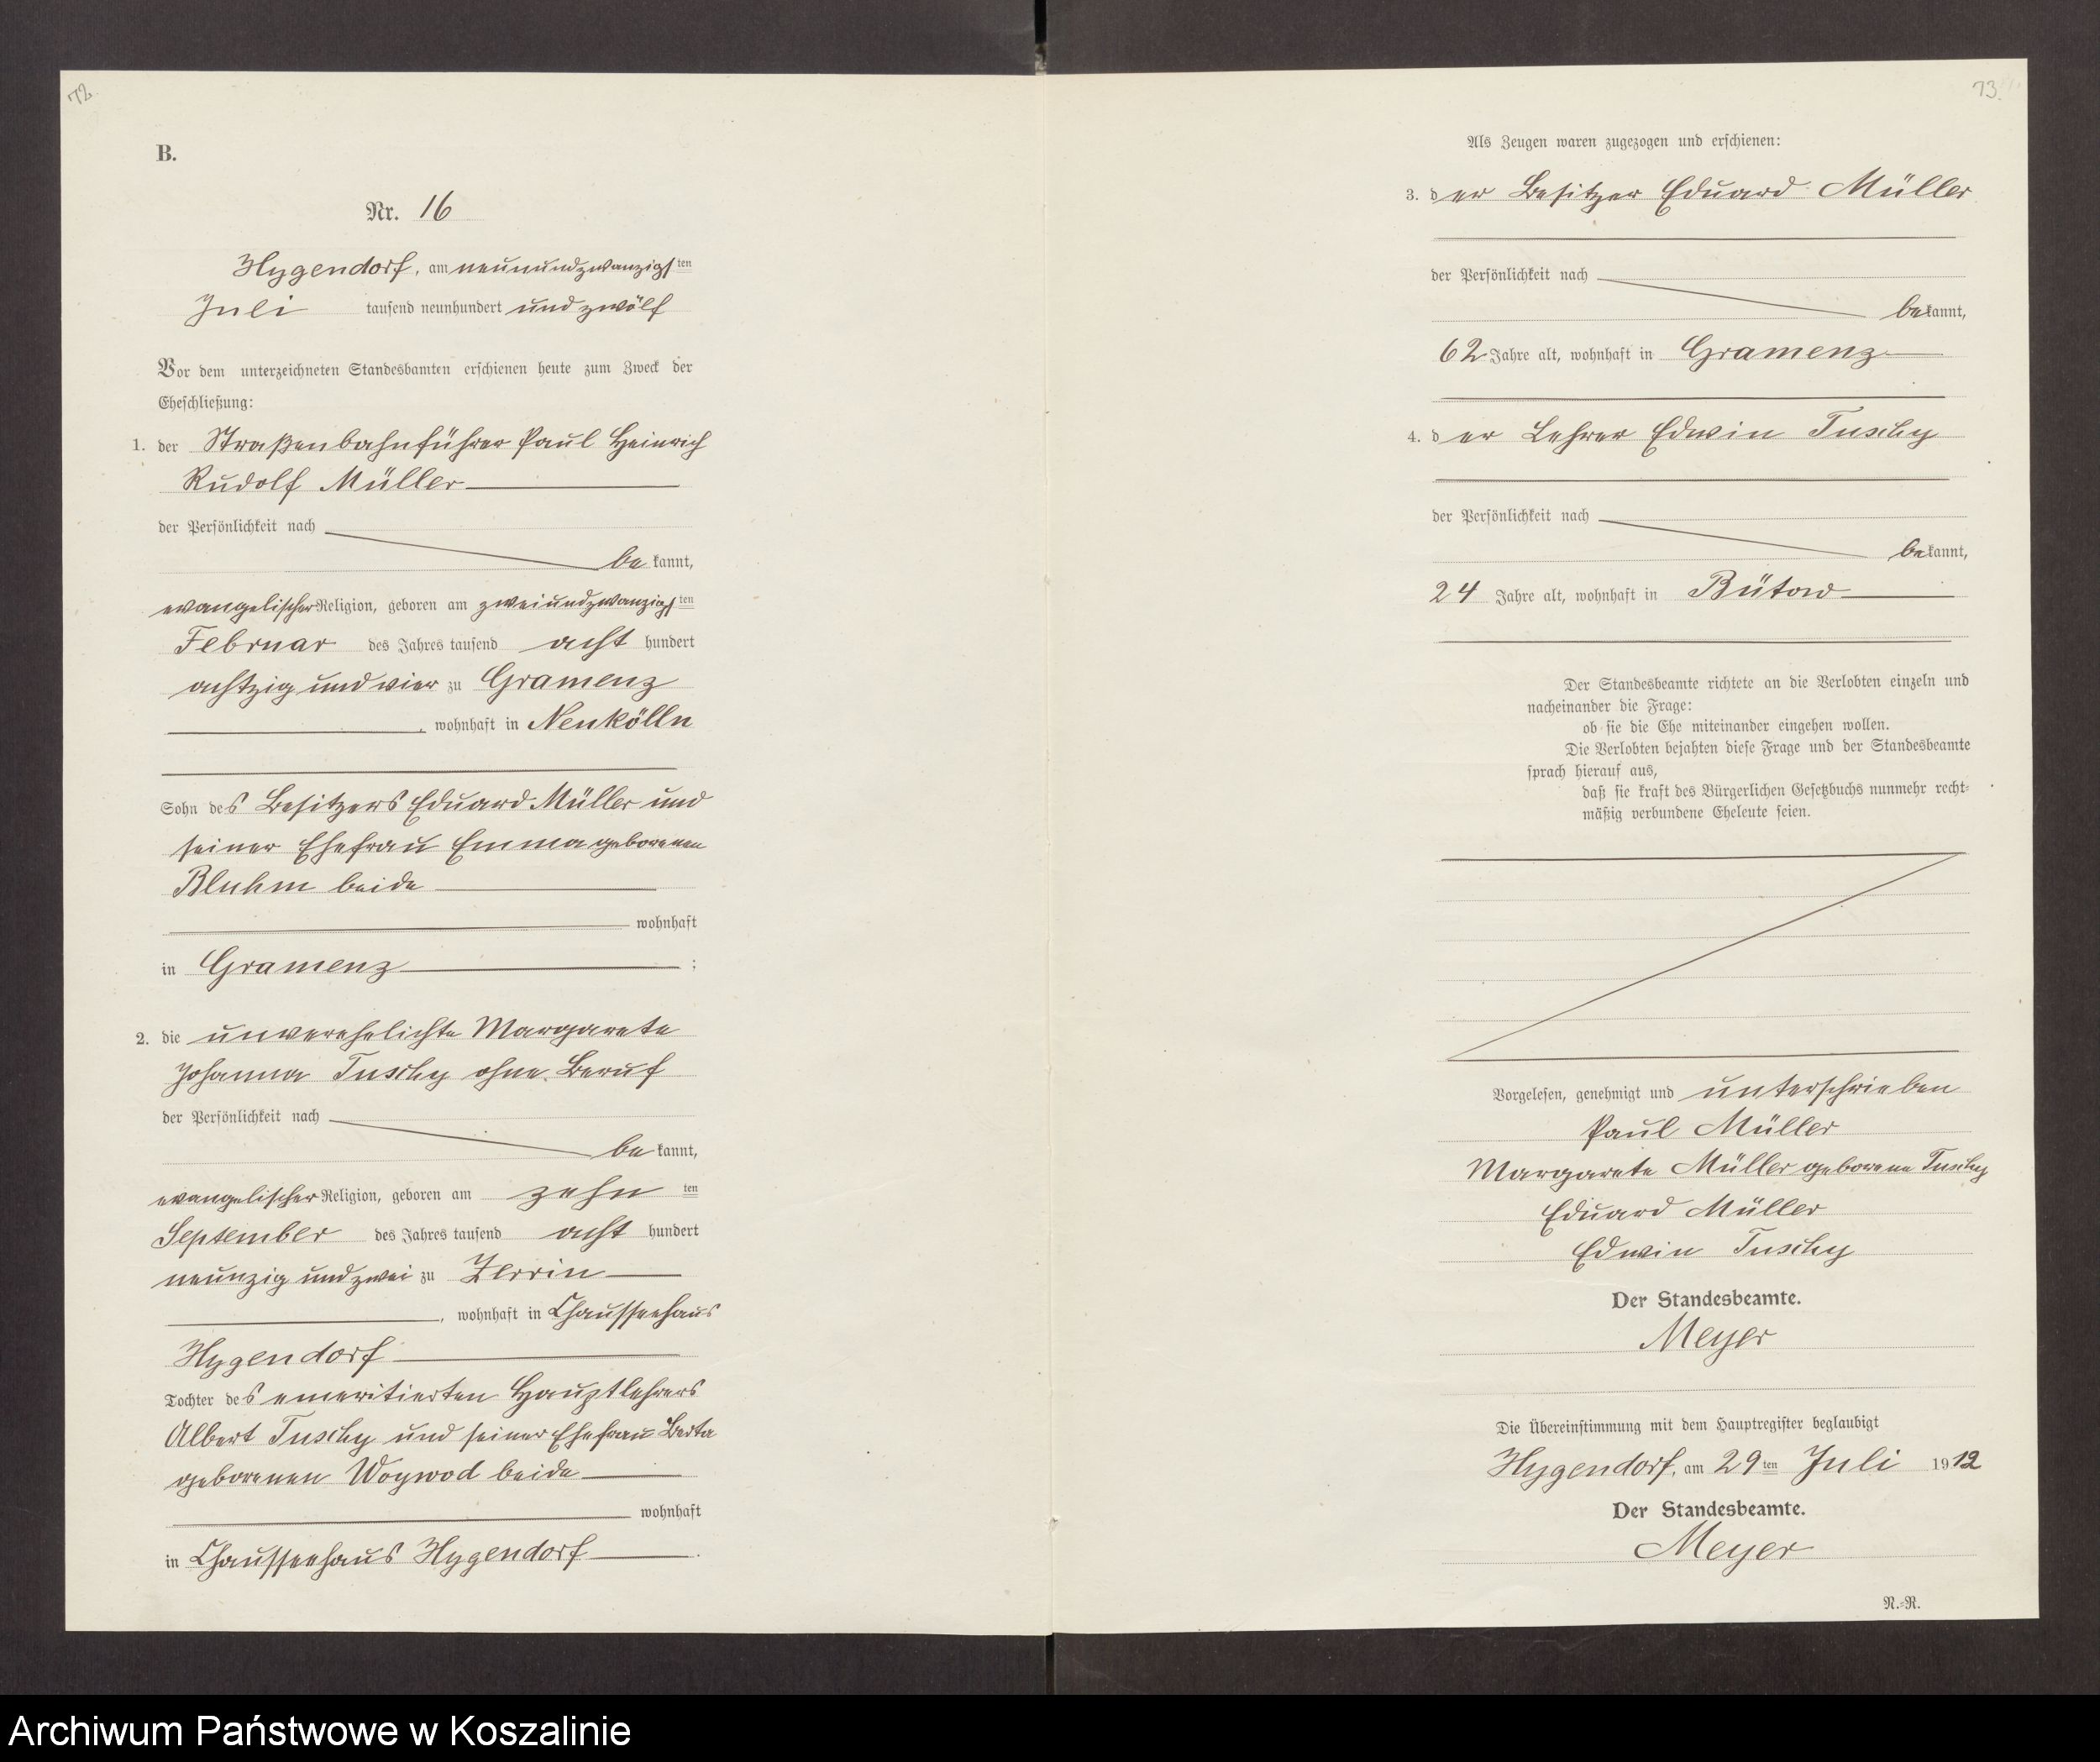 72
B.
Nr. 16
Hygendorf, am neunundzwanzigsten
Juli tausend neunhundert und zwölf
Vor dem unterzeichneten Standesbamten erschienen heute zum Zweck der
Eheschließung:
1. der Straßenbahnführer Paul Heinrich
Rudolf Müller
der Persönlichkeit nach
bekannt,
evangelischer Religion, geboren am zweiundzwanzigsten
Februar des Jahres tausend acht hundert
achtzig und vier zu Gramenz
, wohnhaft in Neukölln
Sohn des Besitzers Eduard Müller und
seiner Ehefrau Emma geborenen
Bluhm beide
wohnhaft
in Gramenz ;
2. die unverehelichte Margarete
Johanna Tuschy ohne Beruf
der Persönlichkeit nach
bekannt,
evangelischer Religion, geboren am zehnten
September des Jahres tausend acht hundert
neunzig und zwei zu Zerrin
, wohnhaft in Chausseehaus
Hygendorf
Tochter des emeritierten Hauptlehrers
Albert Tuschy und seiner Ehefrau Berta
geborenen Woywod beide
wohnhaft
in Chausseehaus Hygendorf .
73.
Als Zeugen waren zugezogen und erschienen:
3. der Besitzer Eduard Müller
der Persönlichkeit nach
bekannt,
62 Jahre alt, wohnhaft in Gramenz
4. der Lehrer Edwin Tuschy
der Persönlichkeit nach
bekannt,
24 Jahre alt, wohnhaft in Bütow
Der Standesbeamte richtete an die Verlobten einzeln und
nacheinander die Frage:
ob sie die Ehe miteinander eingehen wollen.
Die Verlobten bejahten diese Frage und der Standesbeamte
sprach hierauf aus,
daß sie kraft des Bürgerlichen Gesetzbuchs nunmehr recht-
mäßig verbundene Eheleute seien.
Vorgelesen, genehmigt und unterschrieben
Paul Müller
Margarete Müller geborene Tuschy
Eduard Müller
Edwin Tuschy
Der Standesbeamte.
Meyer
Die Übereinstimmung mit dem Hauptregister beglaubigt
Hygendorf, am 29ten Juli 1912
Der Standesbeamte.
Meyer
N.-R.
Archiwum Państwowe w Koszalinie